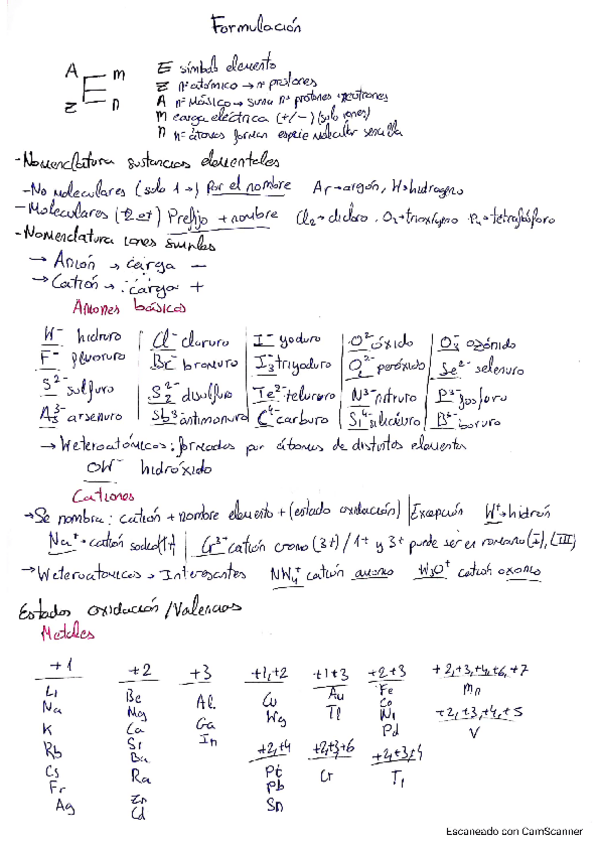 Formulación
A E m
z n
E símbolo elemento
Z nº atómico → nº protones
A nº Másico → suma nº protones y neutrones
m carga eléctrica (+/-) (solo iones)
n nº átomos forman especie molecular sencilla
- Nomenclatura sustancias elementales
- No moleculares (solo 1 →) Por el nombre Ar → argón, H → hidrogeno
- Moleculares (+2 at) Prefijo + nombre Cl2 → dicloro. O3 → trioxígeno P4 → tetrafósforo
- Nomenclatura iones simples
→ Anión → carga -
→ Catión → carga +
Aniones básicos
H- hidruro Cl- cloruro I- yoduro O2- óxido O3- ozónido
F- fluoruro Br- bromuro I3- triyoduro O2 2- peróxido Se2- selenuro
S2- sulfuro S2 2- disulfuro Te2- telururo N3- nitruro P3- fosfuro
As3- arsenuro Sb3- antimonuro C4- carburo Si4- siliciuro B3- boruro
→ Heteroatómicos: formados por átomos de distintos elementos
OH- hidróxido
Cationes
→ Se nombra: catión + nombre elemento + (estado oxidación) | Excepción H+ → hidrón
Na+ → catión sodio (1+) | Cr3+ catión cromo (3+) / 1+ y 3+ puede ser en romano (I), (III)
→ Heteroatomicos → Interesantes NH4+ catión amonio H3O+ catión oxonio
Estados oxidación / Valencias
Metales
+1 +2 +3 +1,+2 +1+3 +2+3 +2,+3,+4,+6,+7
Li Be Al Cu Au Fe Mn
Na Mg Ga Hg Tl Co +2,+3,+4,+5
K Ca In Ni V
Rb Sr +2,+4 +2,+3+6 Pd
Cs Ba Pt Cr +2,+3,+4
Fr Ra Pb Ti
Ag Zn Sn
Cd
Escaneado con CamScanner